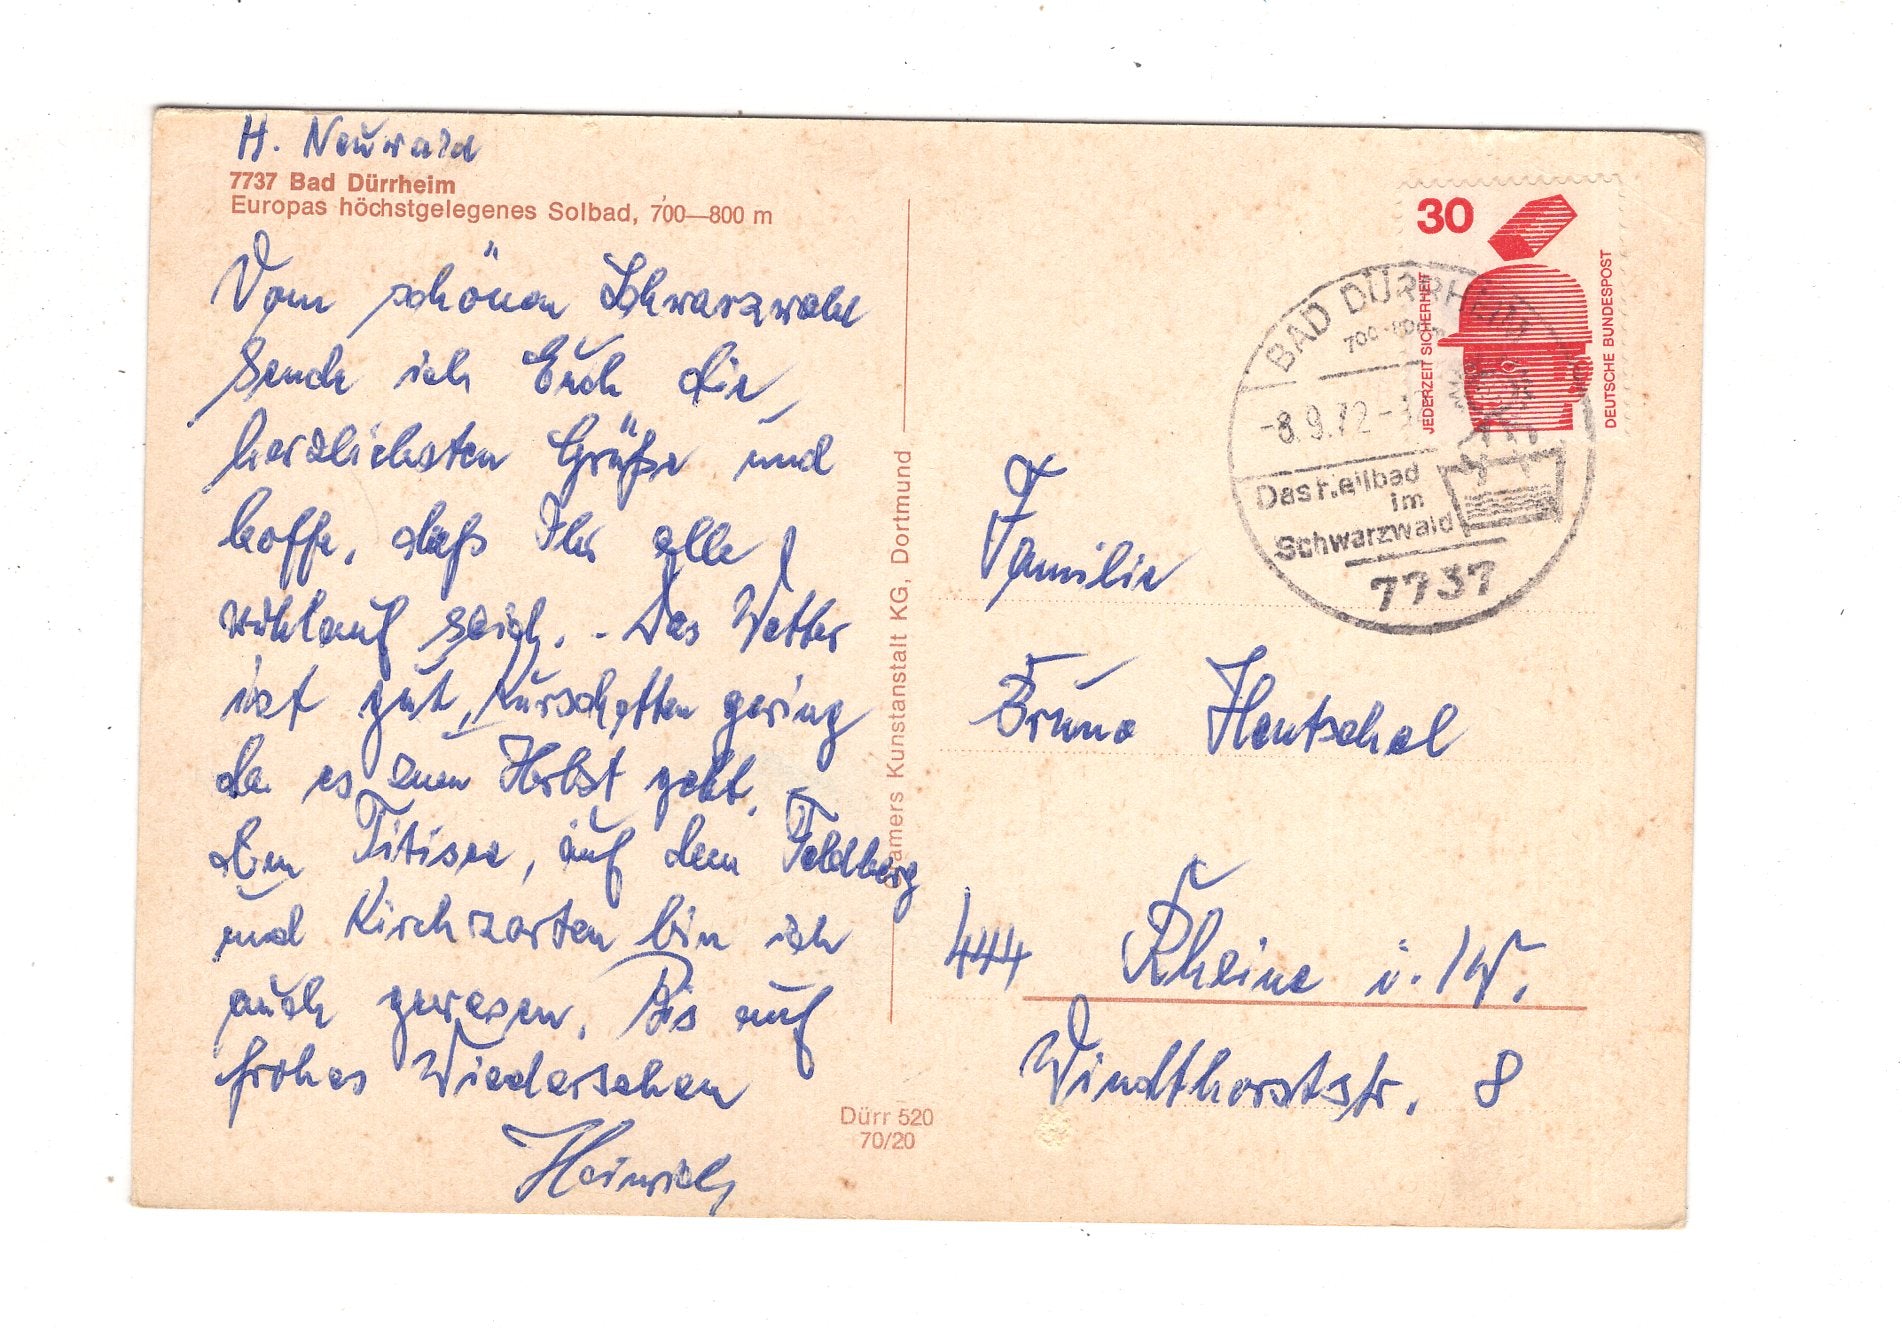 H. Neuwald
7737 Bad Dürrheim
Europas höchstgelegenes Solbad, 700—800 m
Vom schönen Schwarzwald
sende ich Euch die
herzlichsten Grüße und
hoffe, daß Ihr alle
wohlauf seid. - Das Wetter
ist gut, Kurschatten gering
da es zum Herbst geht.
Am Titisee, auf dem Feldberg
und Kirchzarten bin ich
auch gewesen. Bis auf
frohes Wiedersehen
Heinrich
Cramers Kunstanstalt KG, Dortmund
Dürr 520
70/20
30
JEDERZEIT SICHERHEIT
DEUTSCHE BUNDESPOST
BAD DÜRRHEIM
700-800m
-8.9.72-
Das Heilbad
im
Schwarzwald
7737
Familie
Bruno Hentschel
444 Rheine i./W.
Windthorststr. 8